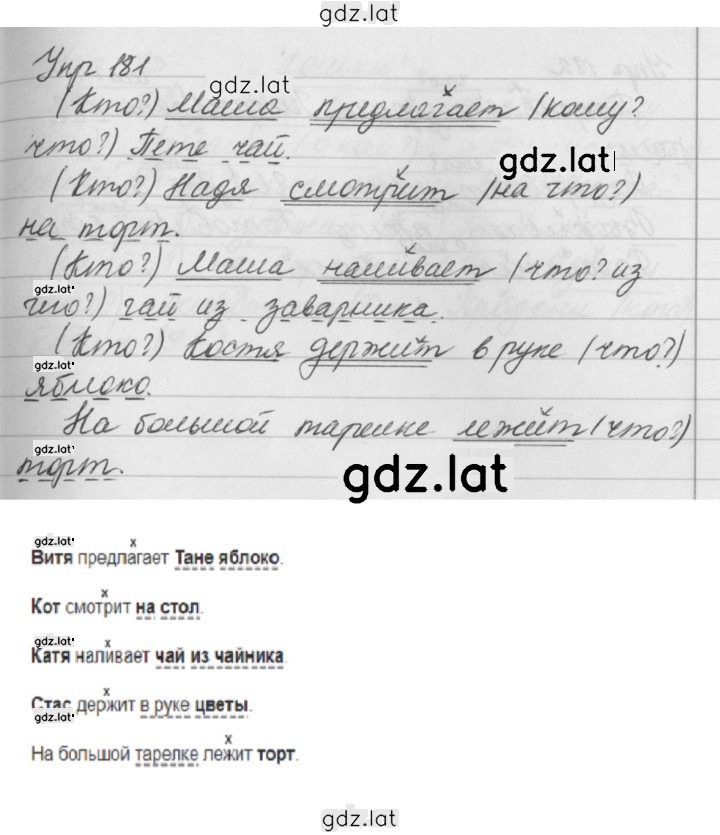 gdz.lat
Упр 181
gdz.lat
(Кто?) Маша предлагает (кому?
что?) Пете чай.
gdz.lat
(Кто?) Надя смотрит (на что?)
gdz.lat
на торт.
(Кто?) Маша наливает (что? из
чего?) чай из заварника.
(Кто?) Костя держит в руке (что?)
gdz.lat
яблоко.
На большой тарелке лежит (что?)
gdz.lat
торт.
gdz.lat
gdz.lat
х
Витя предлагает Тане яблоко.
х
Кот смотрит на стол.
gdz.lat
х
Катя наливает чай из чайника.
х
Стас держит в руке цветы.
gdz.lat
х
На большой тарелке лежит торт.
gdz.lat